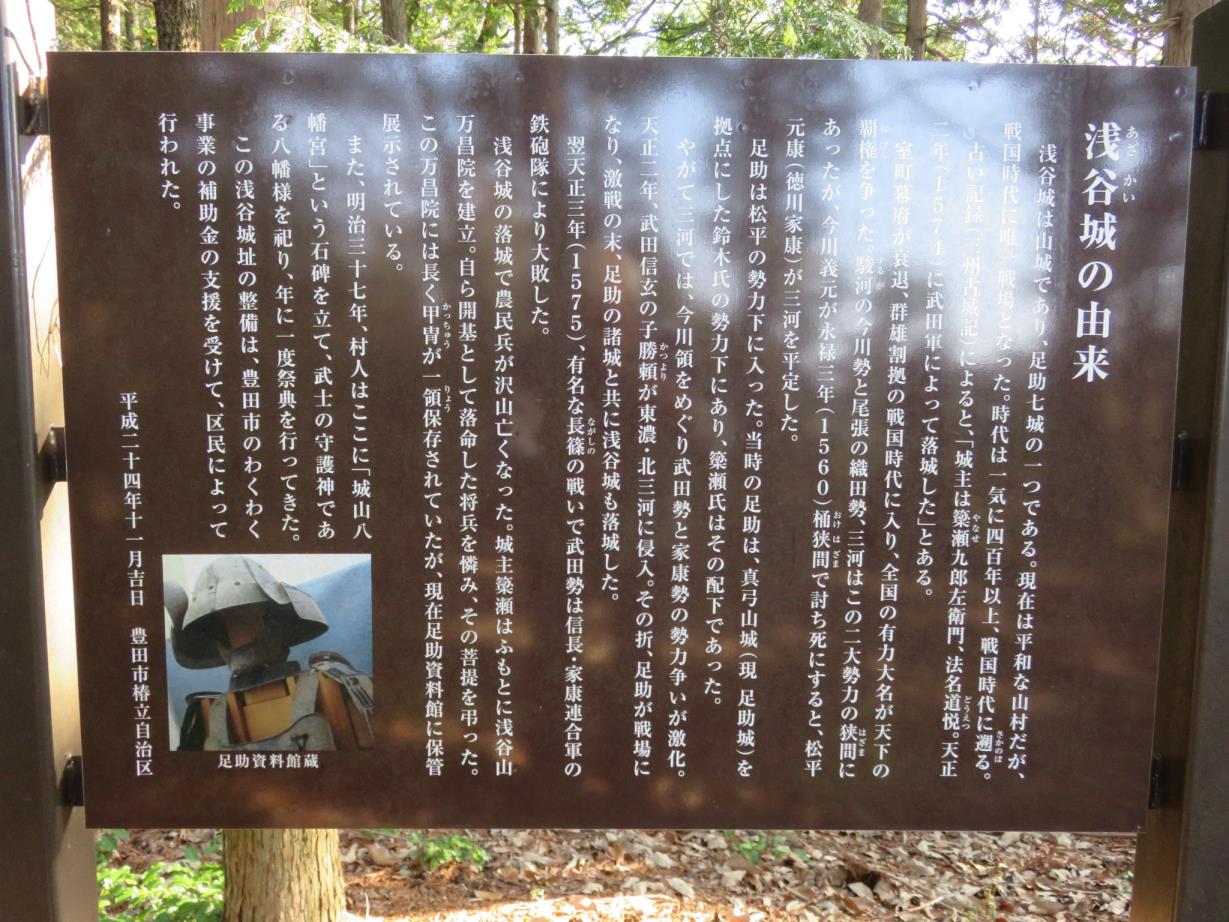 浅谷城の由来
あざかい
浅谷城は山城であり、足助七城の一つである。現在は平和な山村だが、
戦国時代に唯一戦場となった。時代は一気に四百年以上、戦国時代に遡る。
さかのぼ
古い記録(三州古城記)によると、「城主は簗瀬九郎左衛門、法名道悦。天正
やなせ
どうえつ
二年(1574)に武田軍によって落城した」とある。
室町幕府が衰退、群雄割拠の戦国時代に入り、全国の有力大名が天下の
覇権を争った。駿河の今川勢と尾張の織田勢、三河はこの二大勢力の狭間に
はけん
するが
はざま
あったが、今川義元が永禄三年(1560)桶狭間で討ち死にすると、松平
おけはざま
元康(徳川家康)が三河を平定した。
足助は松平の勢力下に入った。当時の足助は、真弓山城(現 足助城)を
拠点にした鈴木氏の勢力下にあり、簗瀬氏はその配下であった。
やがて三河では、今川領をめぐり武田勢と家康勢の勢力争いが激化。
天正二年、武田信玄の子勝頼が東濃・北三河に侵入。その折、足助が戦場に
かつより
なり、激戦の末、足助の諸城と共に浅谷城も落城した。
翌天正三年(1575)、有名な長篠の戦いで武田勢は信長・家康連合軍の
ながしの
鉄砲隊により大敗した。
浅谷城の落城で農民兵が沢山亡くなった。城主簗瀬はふもとに浅谷山
万昌院を建立。自ら開基として落命した将兵を憐み、その菩提を弔った。
この万昌院には長く甲冑が一領保存されていたが、現在足助資料館に保管
かっちゅう
りょう
展示されている。
また、明治三十七年、村人はここに「城山八
幡宮」という石碑を立て、武士の守護神であ
る八幡様を祀り、年に一度祭典を行ってきた。
この浅谷城址の整備は、豊田市のわくわく
事業の補助金の支援を受けて、区民によって
行われた。
平成二十四年十一月吉日 豊田市椿立自治区
足助資料館蔵